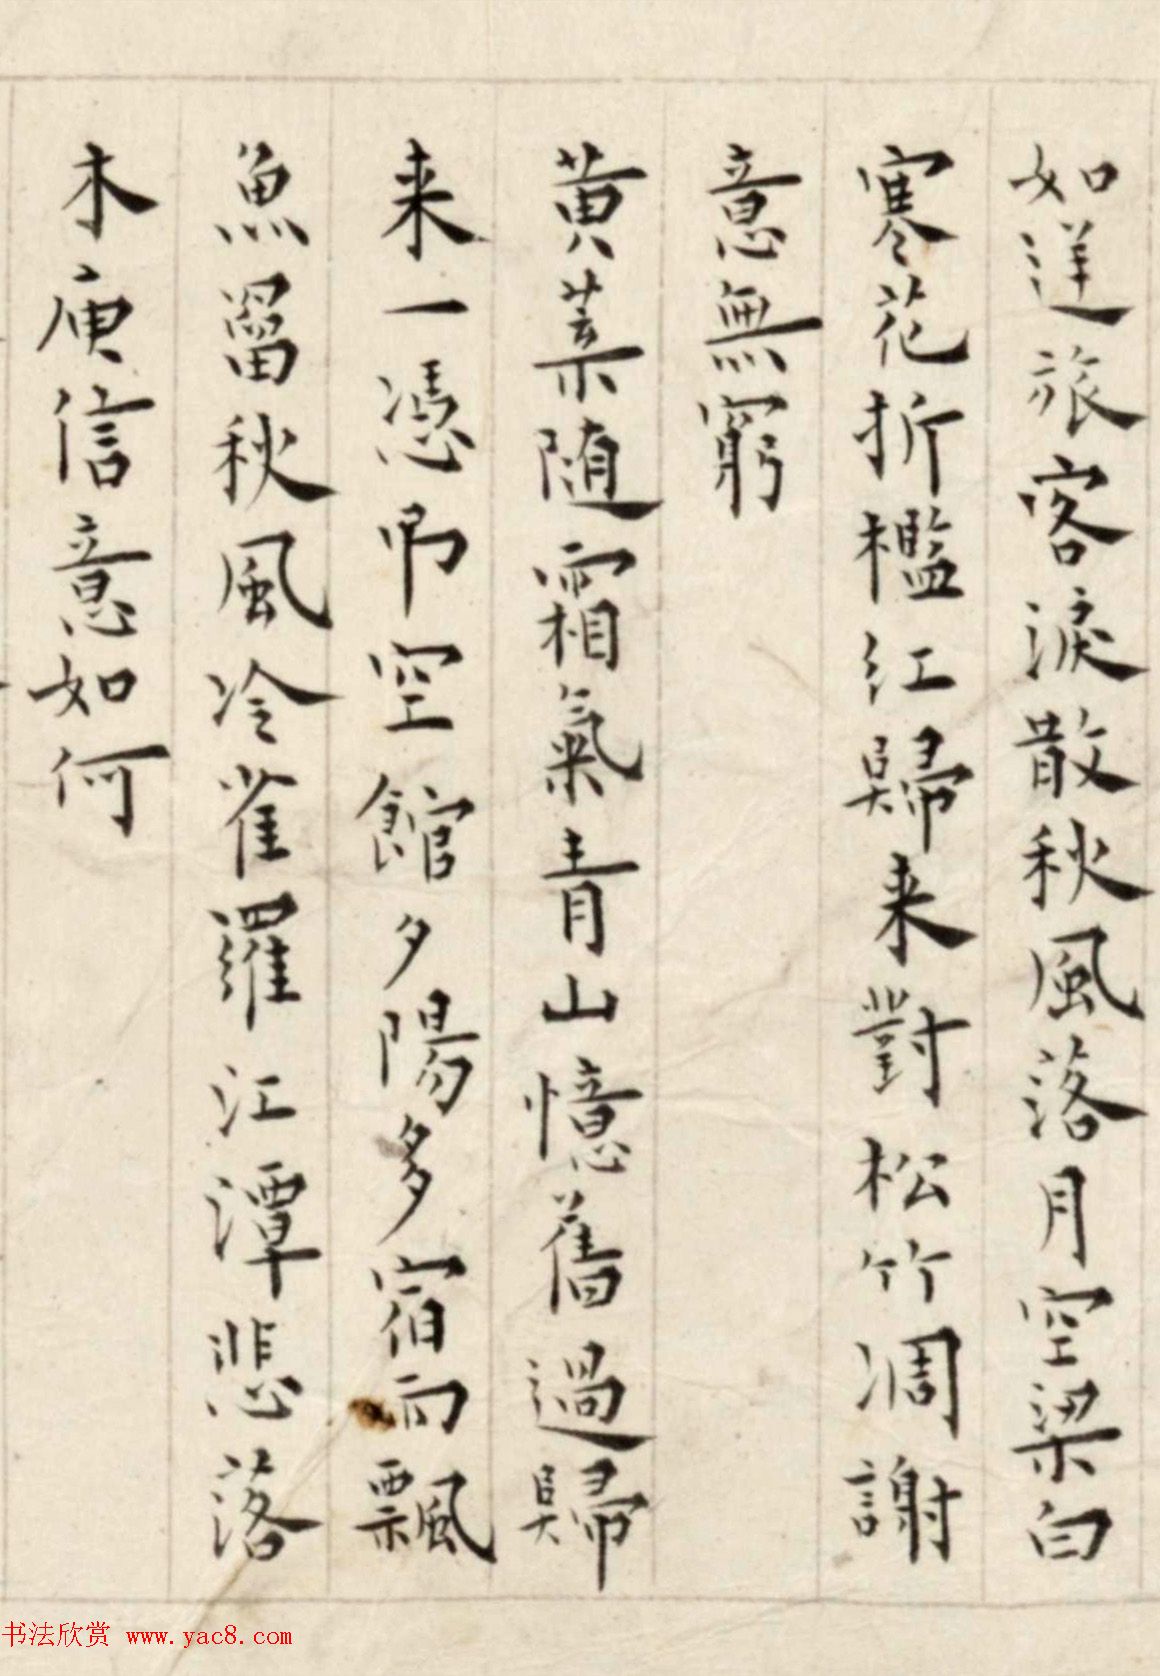 如逆旅客淚散秋風落月空梁白
寒花折檻紅歸来對松竹凋謝
意無窮
黄葉随霜氣青山憶舊過歸
来一憑吊空館夕陽多宿雨飄
魚罶秋風冷雀羅江潭悲落
木庾信意如何
书法欣赏 www.yac8.com